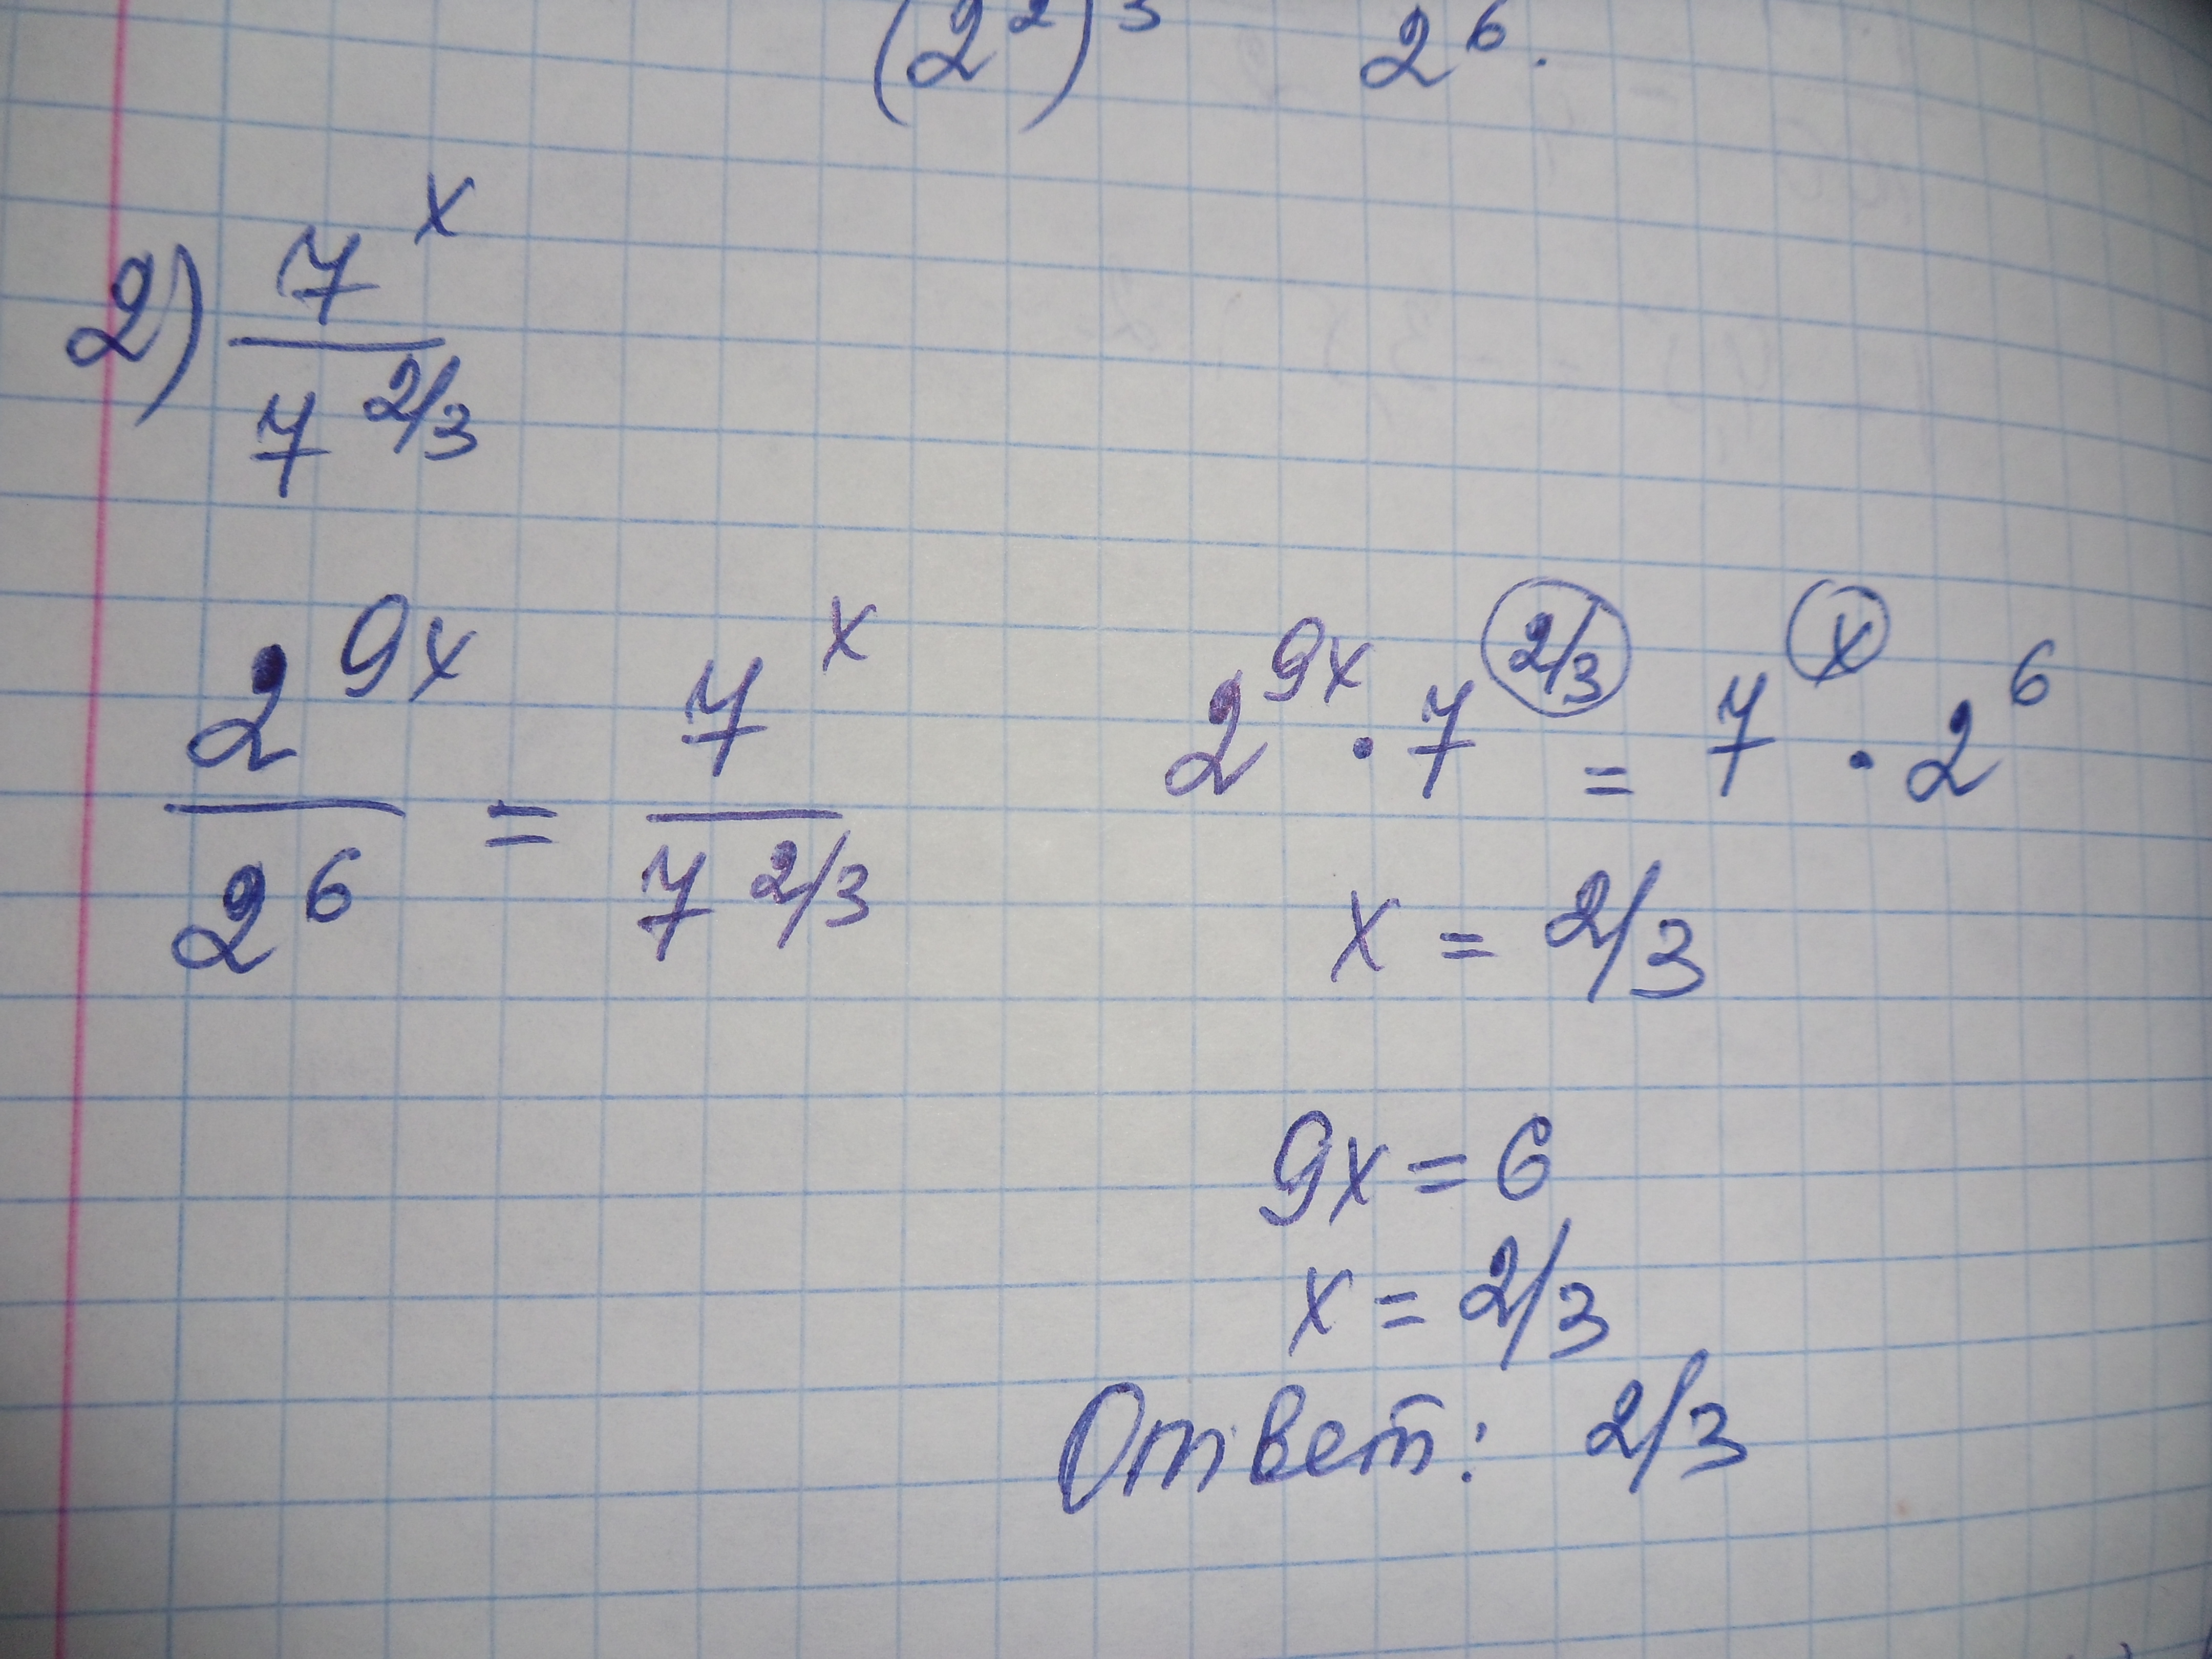 (2²)³ 2⁶.
2) 7ˣ / 7^(2/3)
2^(9x) / 2⁶ = 7ˣ / 7^(2/3)
2^(9x) · 7^(2/3) = 7ˣ · 2⁶
x = 2/3
9x = 6
x = 2/3
Ответ: 2/3